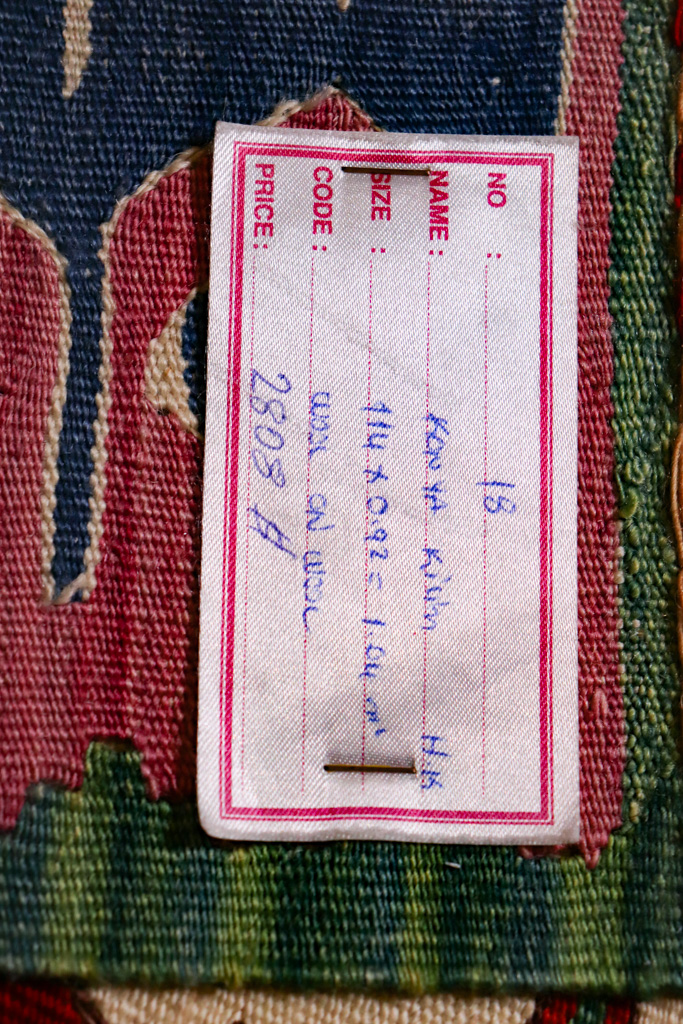 NO : 18
NAME: KONYA KiLiM H.K
SIZE : 114 x 0.92 = 1.04 m²
CODE: WOOL ON WOOL
PRICE: 2808 H